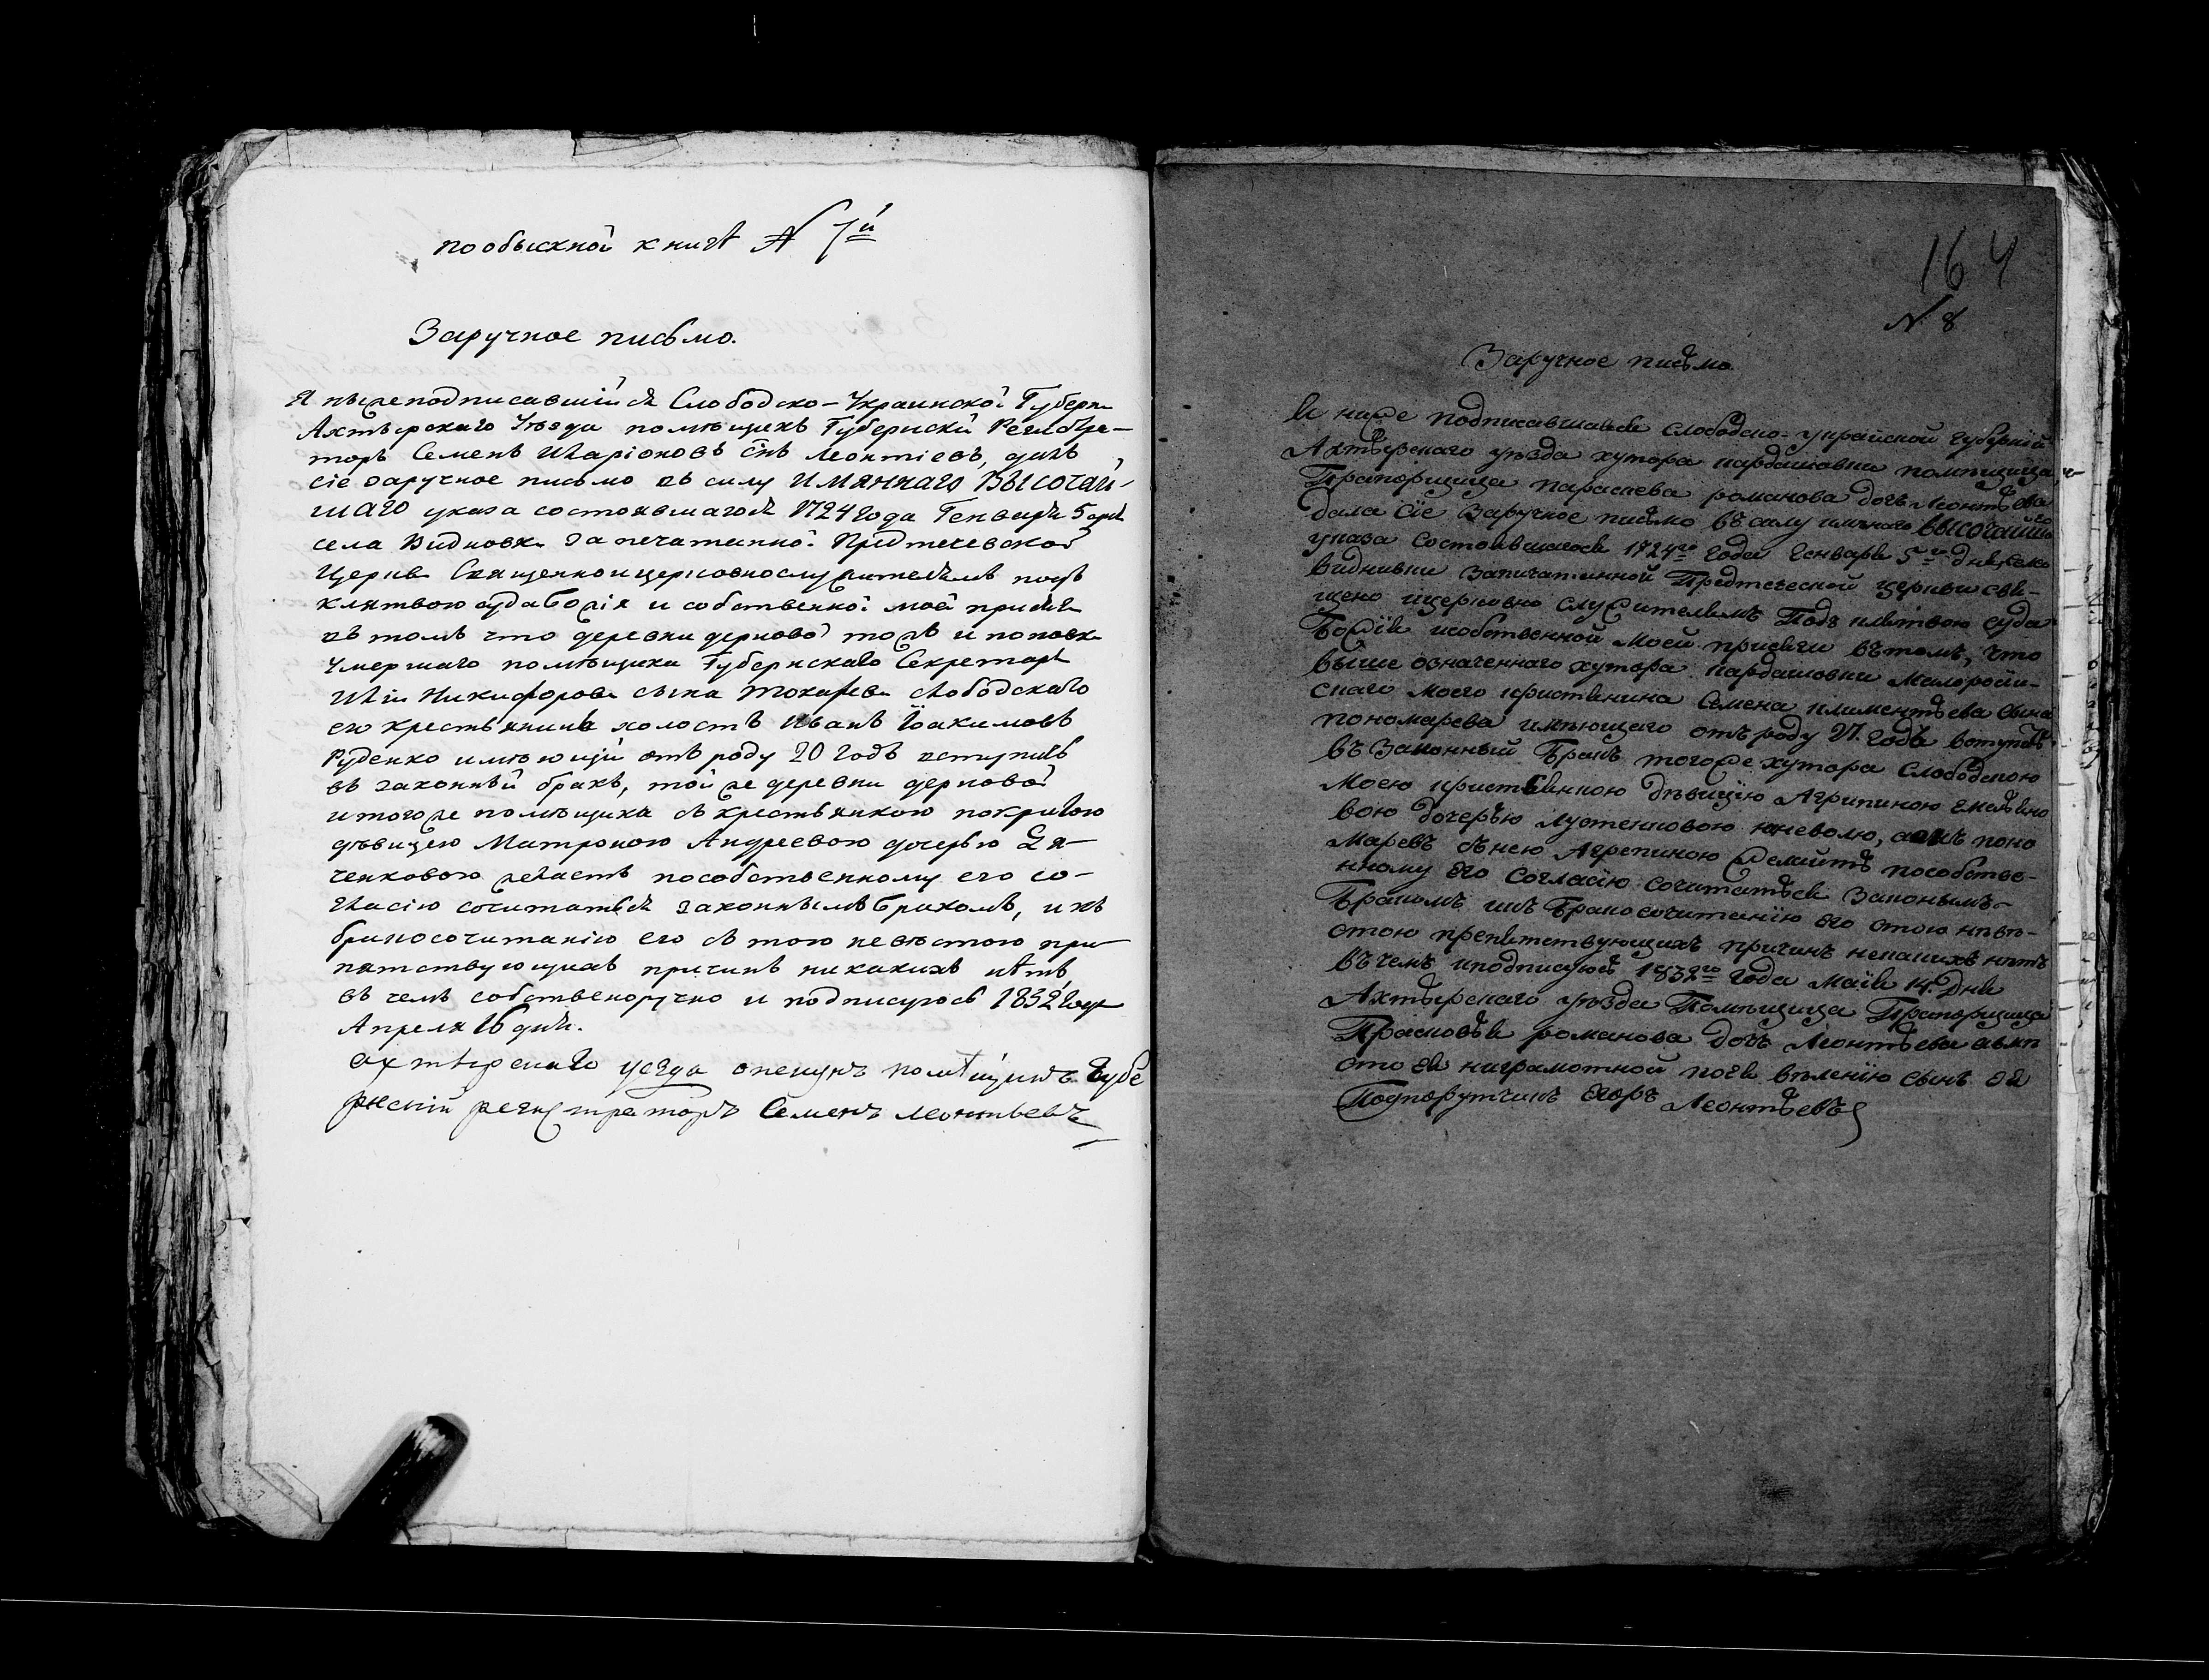 по обыскной книгѣ № 7й
Заручное письмо.
Я нижеподписавшійся Слободско-Украинской Губерн
Ахтырскаго Уѣзда помѣщикъ Губернскій Регистра-
торъ Семенъ Иларіоновъ снъ Леонтіевъ, далъ
сіе заручное письмо въ силу Имяннаго Высочай-
шаго указа состоявшагося 1724 года Генваря 5 дня
села Видновки запечатанной Предтечевской
Церкви Священно и церковнослужителямъ подъ
клятвою суда Божія и собственной моей присяги
въ томъ что деревни дерновой тожъ и поповки
умершаго помѣщика Губернскаго Секретаря
Иліи Никифорова сына Токарева слободскаго
его крестьянинъ холостъ Иванъ Іоакимовъ
Руденко имѣющій отъ роду 20 годъ вступить
въ законный бракъ, той же деревни дерновой
и того же помѣщика съ крестьянкою покритою
дѣвицею Матроною Андреевою дочерью Дя-
ченковою желаетъ по собственному его со-
гласію сочитаться законнымъ бракомъ, и къ
бракосочитанію его съ тою невѣстою пре-
пятствующихъ причинъ никакихъ нѣтъ,
въ чемъ собственоручно и подписуюсь 1832 года
Апреля 16 дня.
Ахтырскаго уезда опекунъ помѣщикъ Губе
рнскій регистраторъ Семенъ Леонтьевъ
164
N. 8
Заручное письмо
Я ниже подписавшаяся слободско-украйской губерніи
Ахтырскаго уѣзда хутора кардашовки помѣщица,
Прапорщица параскева романова дочъ Леонтьева
дала сіе Заручное письмо въ силу имѣнаго Высочайшаго
указа состоявшагося 1724го года Генваря 5го дня, села
Виднивки Запичатанной Предтеческой церкви свя-
щено ицерковно служителямъ Подъ клятвою суда
Божія исобственной моей присяги въ томъ, что
выше означеннаго хутора кардашовки Малоросій-
скаго моего христянина Семена климентьева сына
пономарева имѣющаго отъ роду 21. годъ вступить
въ Законный Бракъ тогоже хутора Слободскою
моею христянкою дѣвицію Агрипиною
вою дочерью Лустенковою неволю, а онъ поно
маревъ сънею Агрепиною Желаитъ пособстве-
нному его согласію сочитаться Законымъ
Бракомъ икъ Бракосочитанію его стою невѣ-
стою препятствующихъ причинъ некакихъ нѣтъ
въ чемъ иподписуюсь 1832го года Маія 14. дня
Ахтырскаго уѣзда Помѣщица Прапорщица
Прасковья романова дочъ Леонтьева авмѣ
сто ея ниграмотной поея вѣленію сынъ ея
Подпорутчикъ Егоръ Леонтьевъ